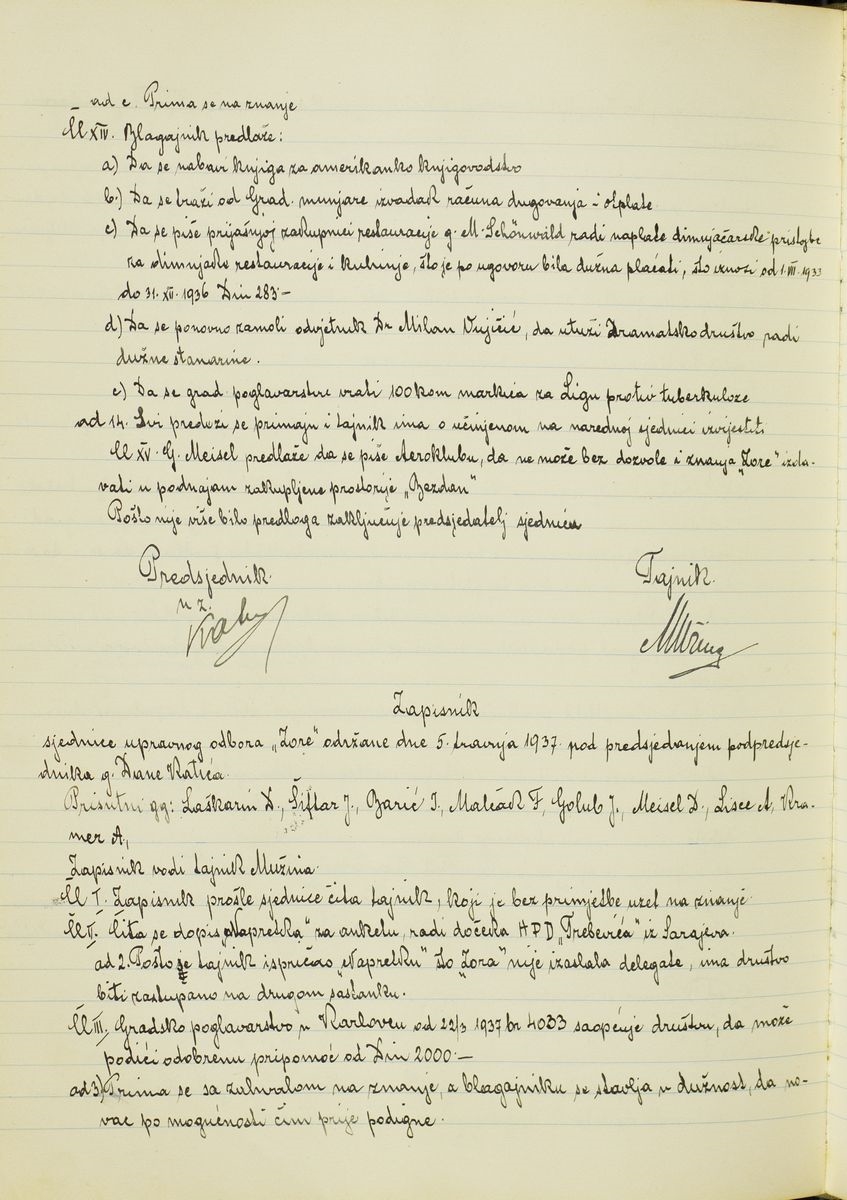 _ ad c. Prima se na znanje
Čl XIV. Blagajnik predlaže:
a) Da se nabavi knjiga za amerikansko knjigovodstvo
b.) Da se traži od Grad. munjare izvadak računa dugovanja i otplate
c) Da se piše prijašnjoj zakupnici restauracije g. M. Schönwald radi naplate dimnjačarske pristojbe
za dimnjake restauracije i kuhinje, što je po ugovoru bila dužna plaćati, što iznosi od 1. VII. 1933
do 31. XII. 1936 Din 283.-
d) Da se ponovno zamoli odvjetnik Dr Milan Vujičić, da utuži Dramatsko društvo radi
dužne stanarine.
e) Da se grad poglavarstvu vrati 100 kom markica za Ligu protiv tuberkuloze
ad 14. Svi predlozi se primaju i tajnik ima o učinjenom na narednoj sjednici izvijestiti
Čl XV. G. Meisel predlaže da se piše Aeroklubu, da ne može bez dozvole i znanja „Zore" izda-
vati u podnajam zakupljene prostorije „Bezdan"
Pošto nije više bilo predloga zaključuje predsjedatelj sjednicu
Predsjednik. Tajnik.
u z.
Zapisnik
sjednice upravnog odbora „Zore" održane dne 5. travnja 1937. pod predsjedanjem podpredsje-
dnika g. Dane Katića.
Prisutni gg: Laškarin D., Šiftar J., Barić I., Malčak F, Golub J., Meisel D., Lisce A, Kra-
mer A.,
Zapisnik vodi tajnik Mužina.
Čl I. Zapisnik prošle sjednice čita tajnik, koji je bez primjetbe uzet na znanje.
Čl II. Čita se dopis „Napretka" za anketu, radi dočeka HPD „Trebevića" iz Sarajeva.
ad 2. Pošto se tajnik ispričao „Napretku" što „Zora" nije izaslala delegate, ima društvo
biti zastupano na drugom sastanku.
Čl III. Gradsko poglavarstvo u Karlovcu od 22/3 1937 br 4033 saopćuje društvu, da može
podići odobrenu pripomoć od Din 2000.-
ad 3) Prima se sa zahvalom na znanje, a blagajniku se stavlja u dužnost, da no-
vac po mogućnosti čim prije podigne.